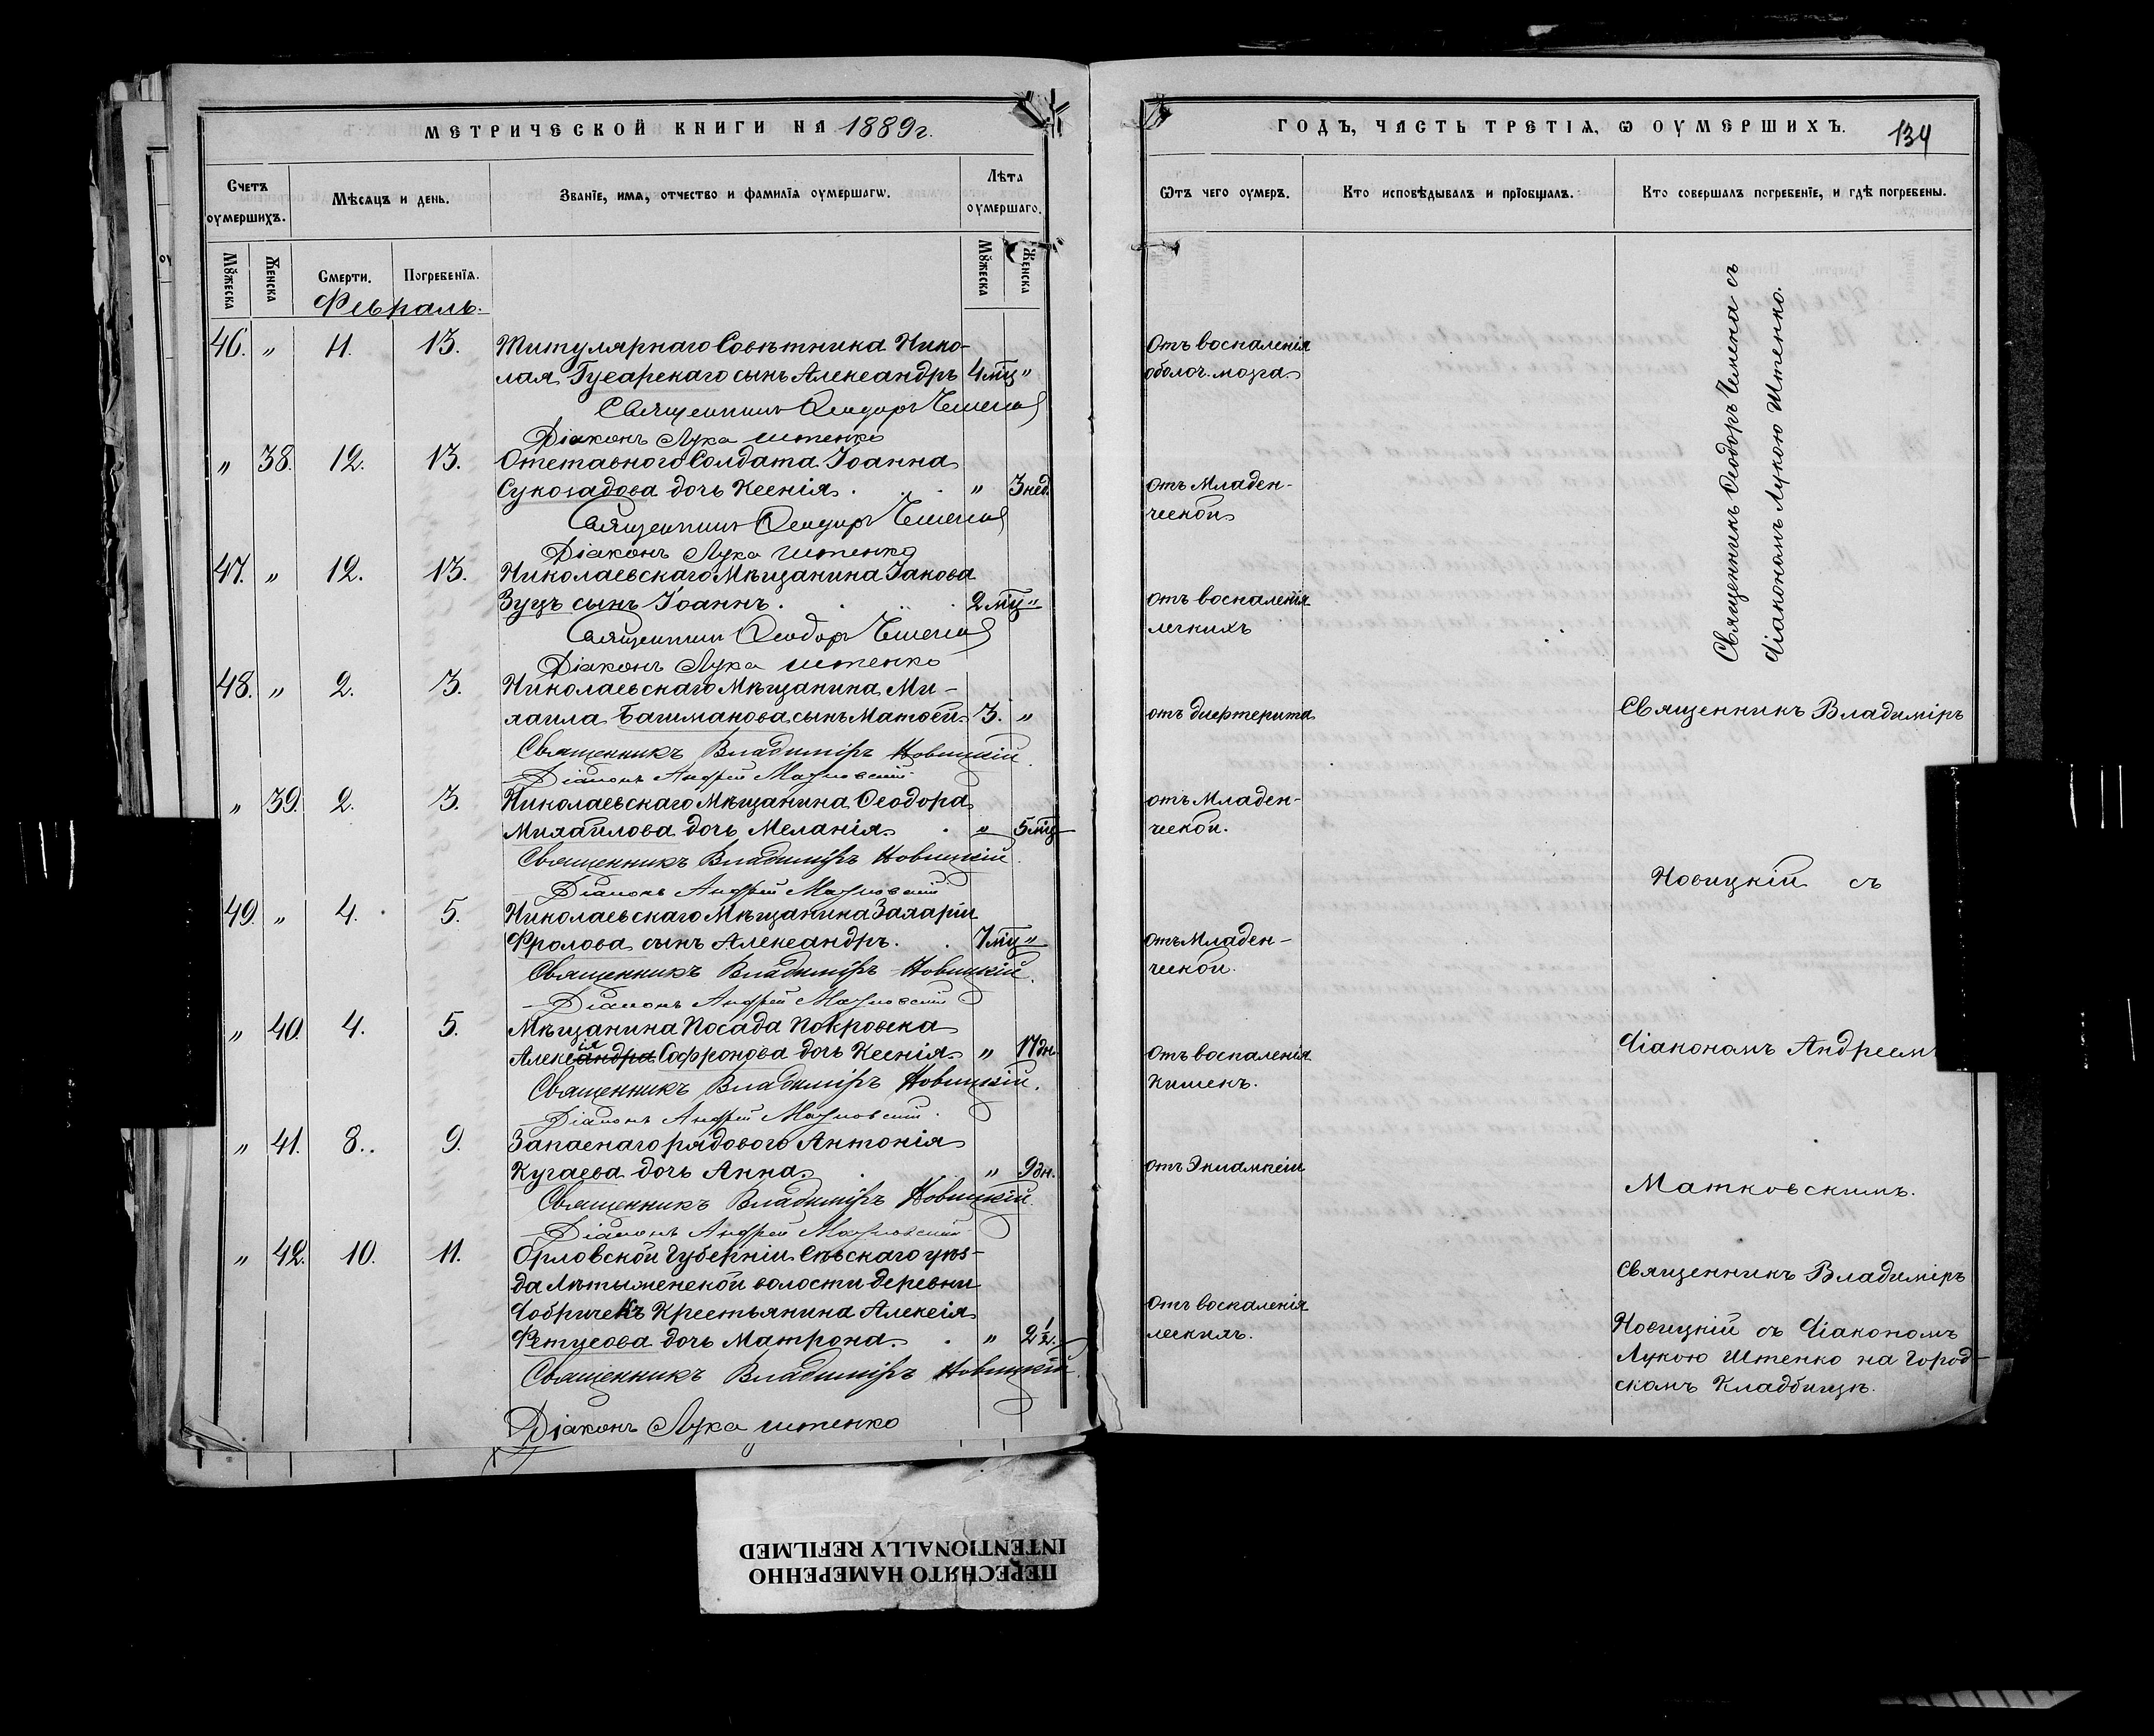 МЕТРИЧЕСКОЙ КНИГИ НА 1889 г.
Счетъ оумершихъ.
Мѣсяцъ и день.
Званіе, имя, отчество и фамилія оумершагѡ.
Лѣта оумершаго.
Мꙋжеска
Женска
Смерти.
Погребенія.
Мꙋжеска
Женска
Февраль.
46. „ 11. 13. Титулярнаго Совѣтника Нико-
лая Гусарскаго сынъ Александръ 4 мц „
Священникъ Ѳеодоръ Чемена
Діаконъ Лука Штенко
„ 38. 12. 13. Отставного Солдата Іоанна
Сукогадова дочь Ксенія. „ 3 нед.
Священникъ Ѳеодоръ Чемена
Діаконъ Лука Штенко
47. „ 12. 13. Николаевскаго Мѣщанина Іакова
Зуцъ сынъ Іоаннъ. 2 мц „
Священникъ Ѳеодоръ Чемена
Діаконъ Лука Штенко
48. „ 2. 3. Николаевскаго Мѣщанина Ми-
хаила Башманова сынъ Матѳей 3. „
Священникъ Владиміръ Новицкій.
Діаконъ Андрей Матковскій
„ 39. 2. 3. Николаевскаго Мѣщанина Ѳеодора
Михайлова дочь Меланія. „ 5 мц
Священникъ Владиміръ Новицкій.
Діаконъ Андрей Матковскій
49. „ 4. 5. Николаевскаго Мѣщанина Захаріи
Фролова сынъ Александръ. 7 мц „
Священникъ Владиміръ Новицкій.
Діаконъ Андрей Матковскій
„ 40. 4. 5. Мѣщанина Посада Покровска
Алексія Софронова дочь Ксенія. „ 17 дн.
Священникъ Владиміръ Новицкій.
Діаконъ Андрей Матковскій.
„ 41. 8. 9. Запаснаго рядового Антонія
Кугаева дочь Анна. „ 9 дн.
Священникъ Владиміръ Новицкій.
Діаконъ Андрей Матковскій
„ 42. 10. 11. Орловской Губерніи Сѣвскаго уѣз-
да Лѣтыженской волости деревни
Добричекъ Крестьянина Алексія
Фетисова дочь Матрона. „ 2 ½.
Священникъ Владиміръ Новицкій.
Діаконъ Лука Штенко
ГОДЪ, ЧАСТЬ ТРЕТІЯ, Ѡ ОУМЕРШИХЪ. 134
Ѿтъ чего оумеръ.
Кто исповѣдывалъ и пріобщалъ.
Кто совершалъ погребеніе, и гдѣ погребены.
Отъ воспаленія
оболоч. мозга.
отъ Младен-
ческой
отъ воспаленія
легкихъ
отъ дифтерита
отъ Младен-
ческой.
отъ Младен-
ческой.
отъ воспаленія
Кишекъ.
отъ Эклампсіи
отъ воспаленія
легкихъ.
Священникъ Ѳеодоръ Чемена съ
Діакономъ Лукою Штенко.
Священникъ Владиміръ
Новицкій съ
Діакономъ Андреемъ
Матковскимъ.
Священникъ Владиміръ
Новицкій съ Діакономъ
Лукою Штенко на Город-
скомъ Кладбищѣ.
ПЕРЕСНЯТО НАМЕРЕННО
INTENTIONALLY REFILMED